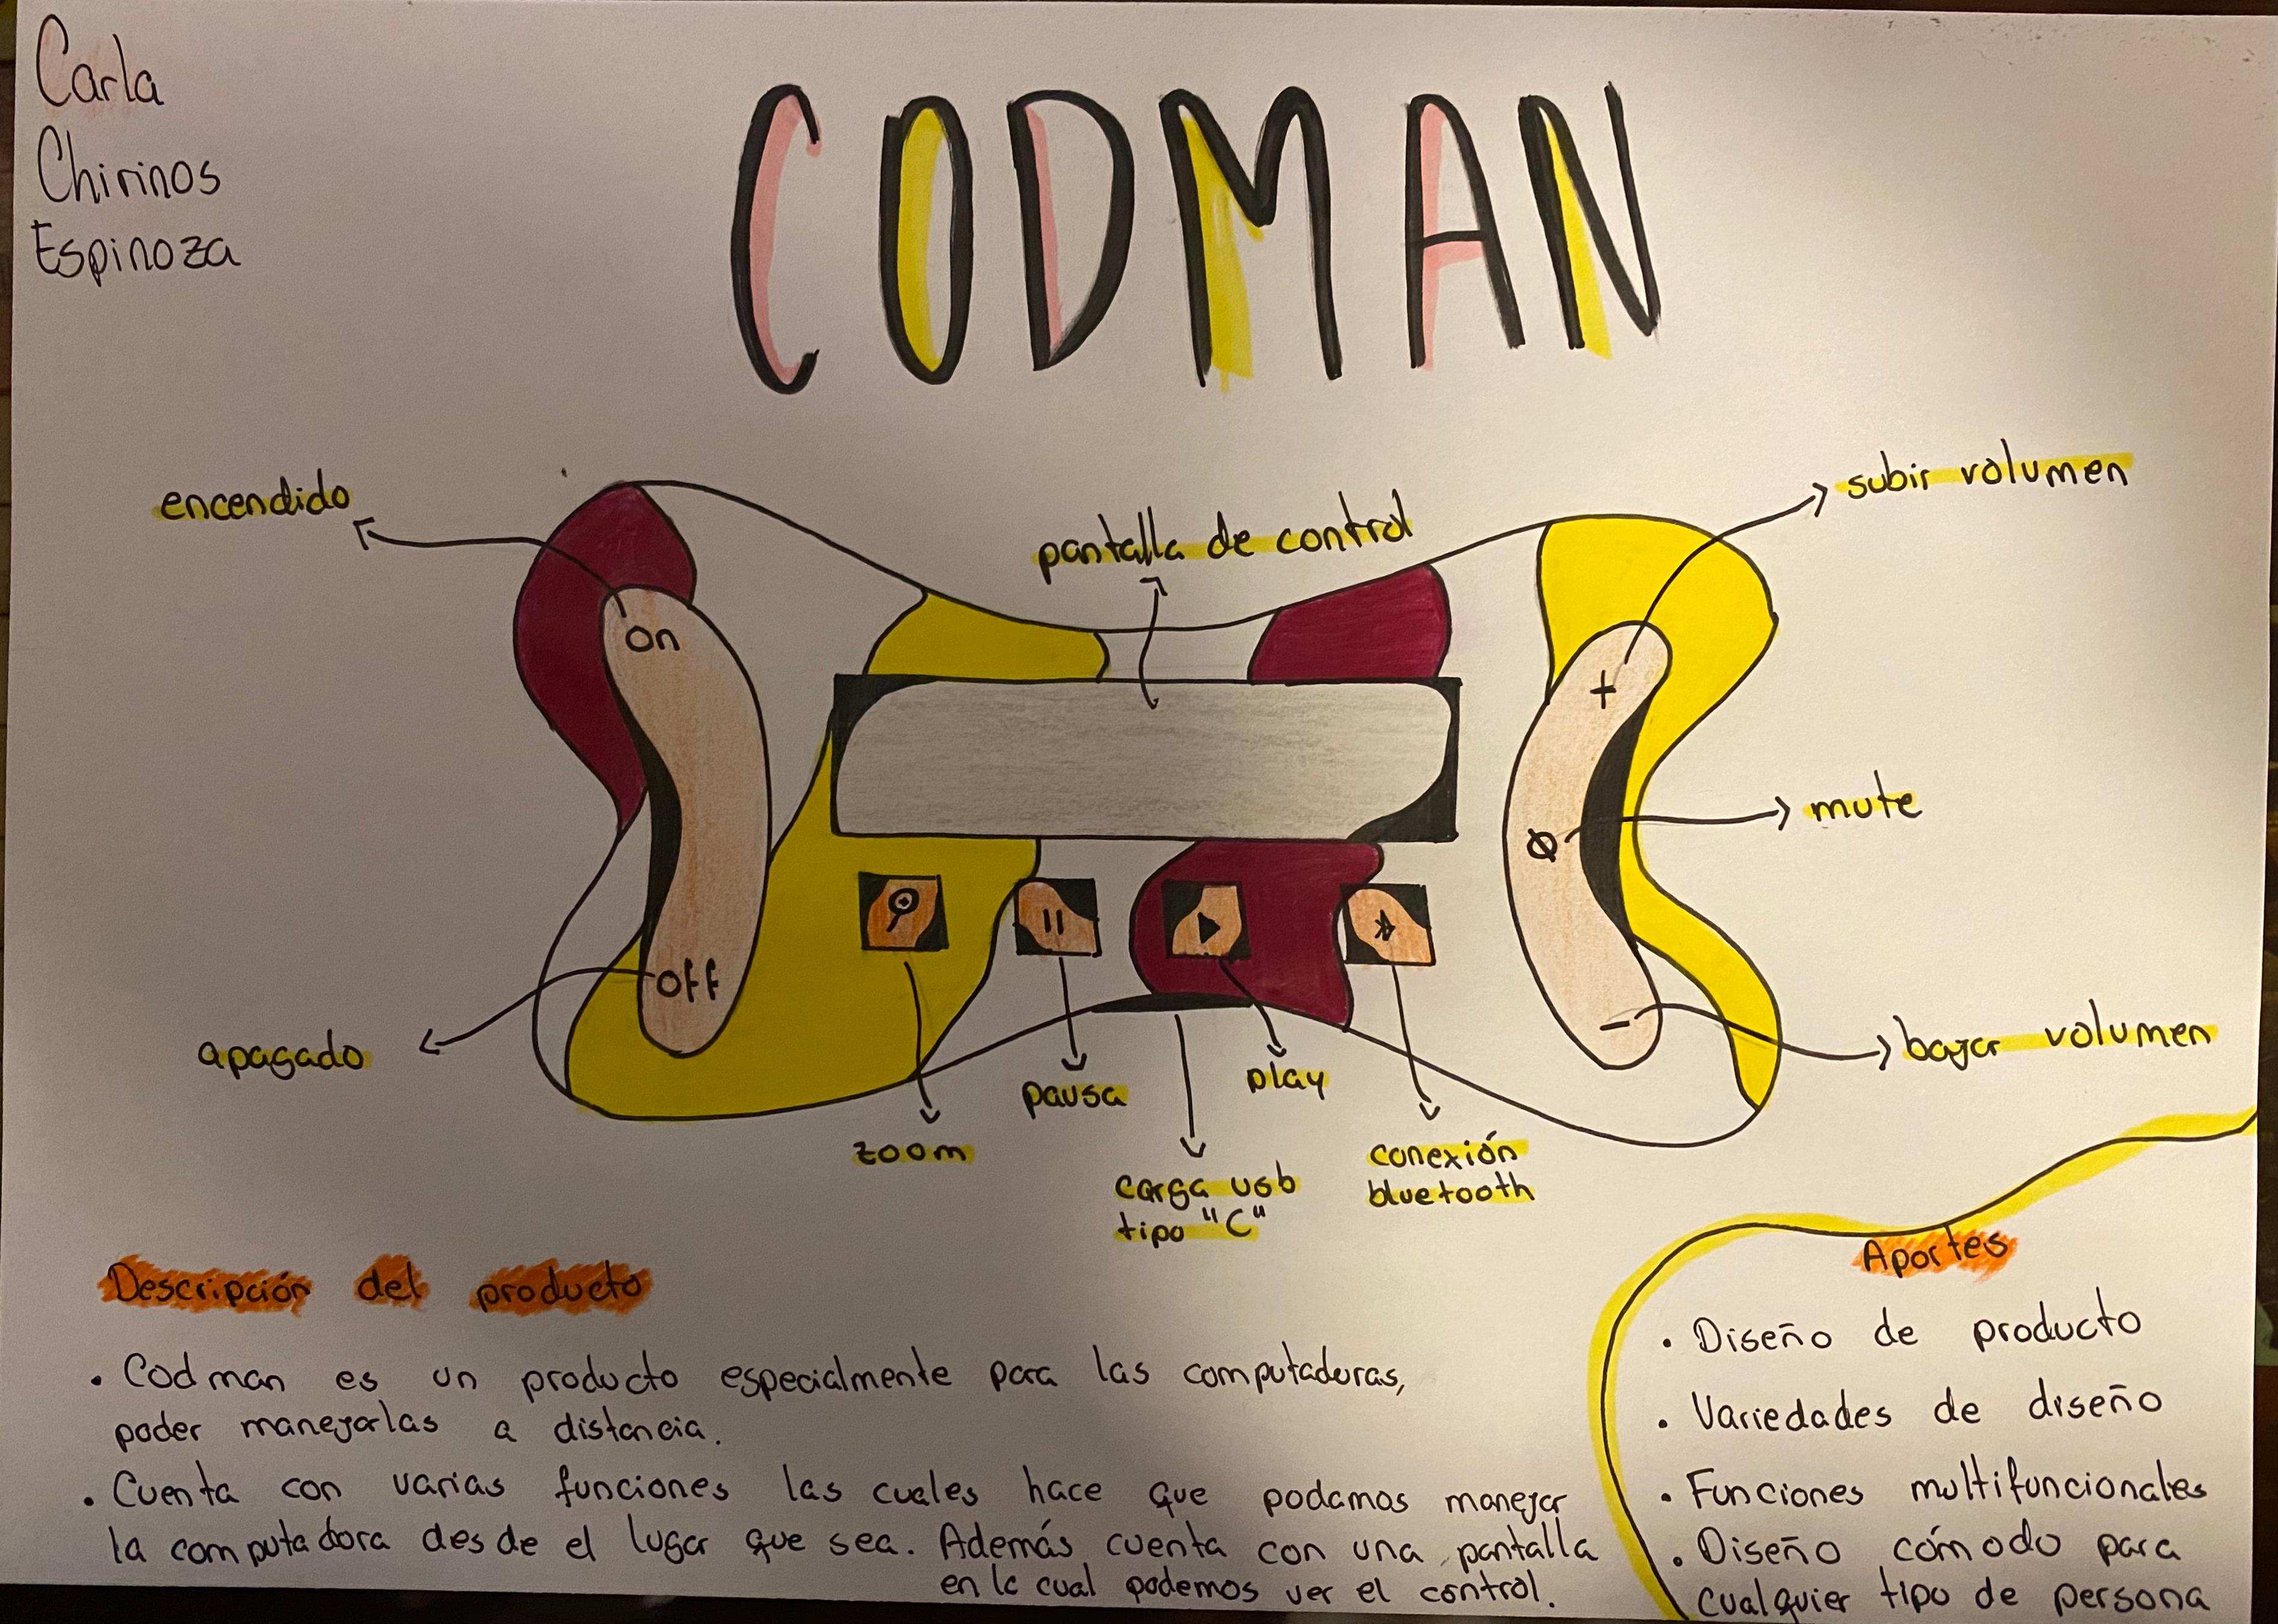 Carla
Chirinos
Espinoza
CODMAN
encendido
pantalla de control
subir volumen
on
+
mute
off
-
apagado
bajar volumen
zoom
pausa
play
carga usb
tipo "C"
conexión
bluetooth
Descripción del producto
• Codman es un producto especialmente para las computadoras,
poder manejarlas a distancia.
• Cuenta con varias funciones las cuales hace que podamos manejar
la computadora desde el lugar que sea. Además cuenta con una pantalla
en la cual podemos ver el control.
Aportes
• Diseño de producto
• Variedades de diseño
• Funciones multifuncionales
• Diseño cómodo para
cualquier tipo de persona